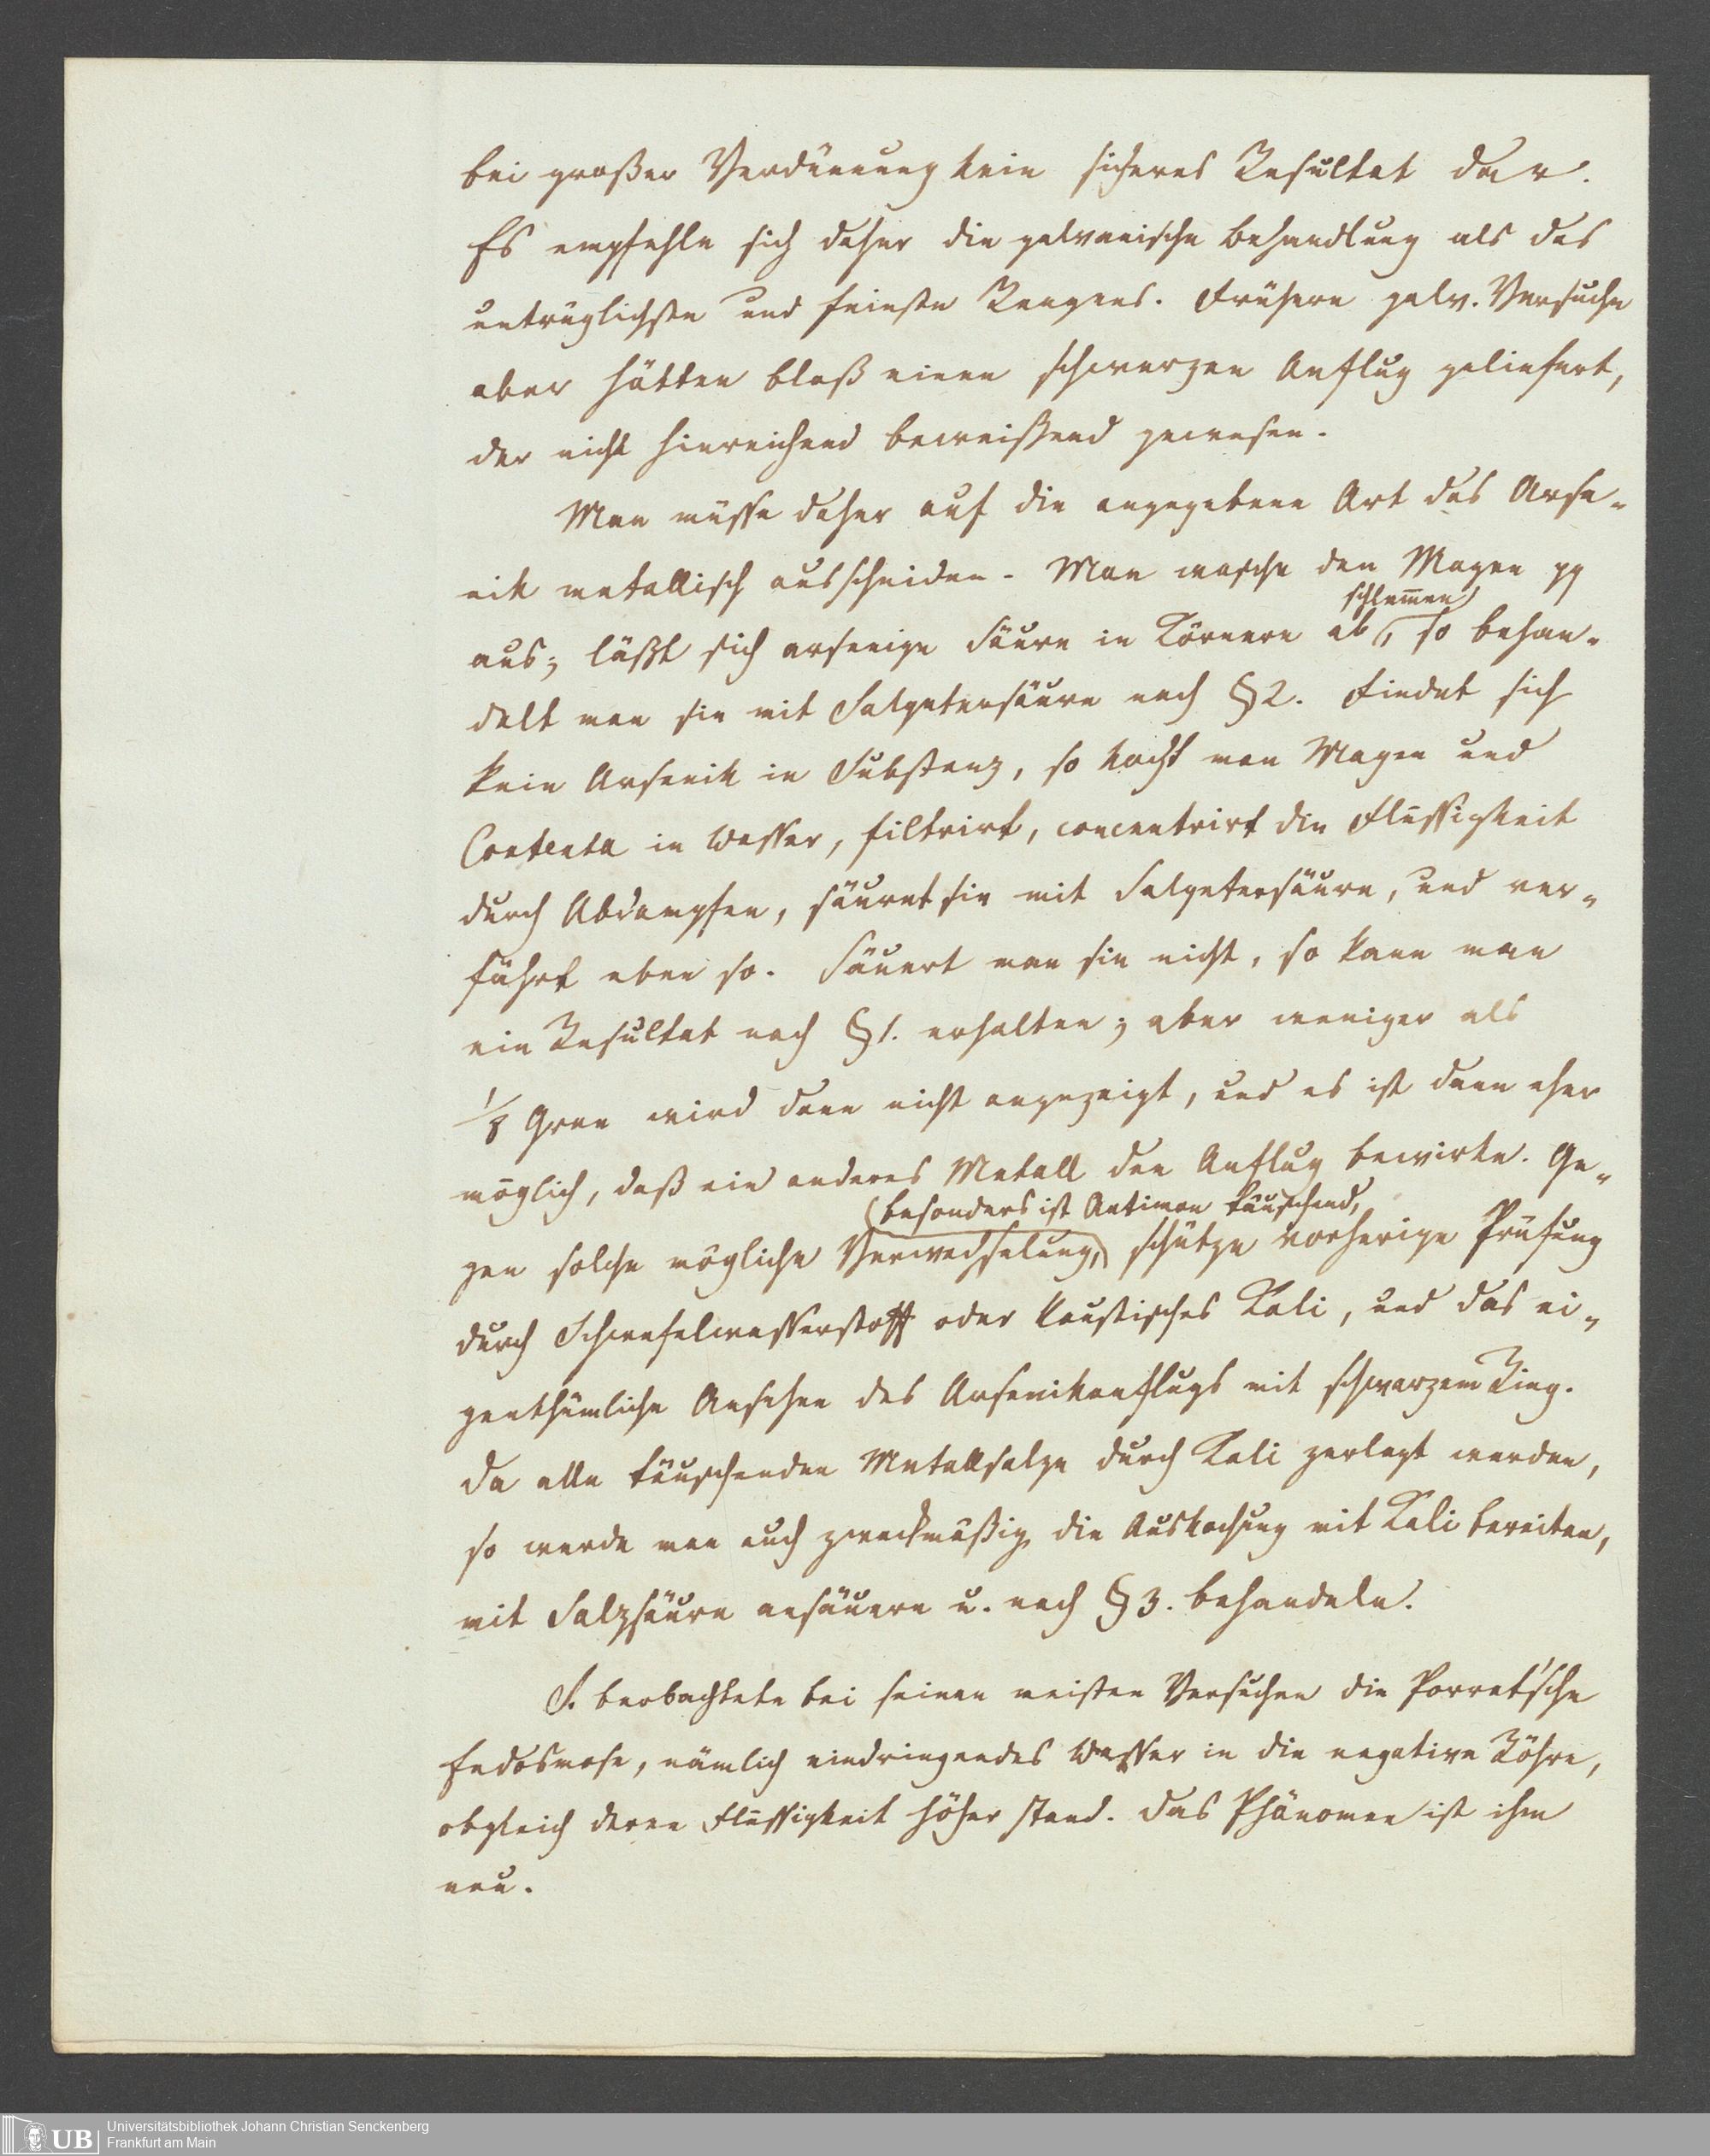 bei großer Verdünnung kein sicheres Resultat dar.
Es empfehle sich daher die galvanische Behandlung als das
untrüglichste und feinste Reagens. Frühere galv. Versuche
aber hätten bloß einen schwarzen Anflug geliefert,
der nicht hinreichend beweißend gewesen.
Man müsse daher auf die angegebene Art das Arse-
nik metallisch ausscheiden. Man wasche den Magen pp
schlem̅en
aus; läßt sich arsenige Säure in Körnern ab, so behan-
delt man sie mit Salpetersäure nach § 2. Findet sich
kein Arsenik in Substanz, so kocht man Magen und
Contenta in Wasser, filtrirt, concentrirt die Flüssigkeit
durch Abdampfen, säuret sie mit Salpetersäure, und ver-
fährt eben so. Säuert man sie nicht, so kann man
ein Resultat nach § 1. erhalten; aber weniger als
1/8 Gran wird dann nicht angezeigt, und es ist dann eher
möglich, daß ein anderes Metall den Anflug bewirke. Ge-
besonders ist Antimon täuschend,
gen solche mögliche Verwechselung, schütze vorherige Prüfung
durch Schwefelwasserstoff oder kaustisches Kali, und das ei-
genthümliche Ansehen des Arsenikanflugs mit schwarzem Ring.
Da alle täuschenden Metallsalze durch Kali zerlegt werden,
so werde man auch zweckmäßig die Auskochung mit Kali bereiten,
mit Salzsäure ansäuern u. nach § 3. behandeln.
F. beobachtete bei seinen meisten Versuchen die Porret'sche
Endosmose, nämlich eindringendes Wasser in die negative Röhre,
obgleich deren Flüssigkeit höher stand. Das Phänomen ist ihm
neu.
UB
Universitätsbibliothek Johann Christian Senckenberg
Frankfurt am Main